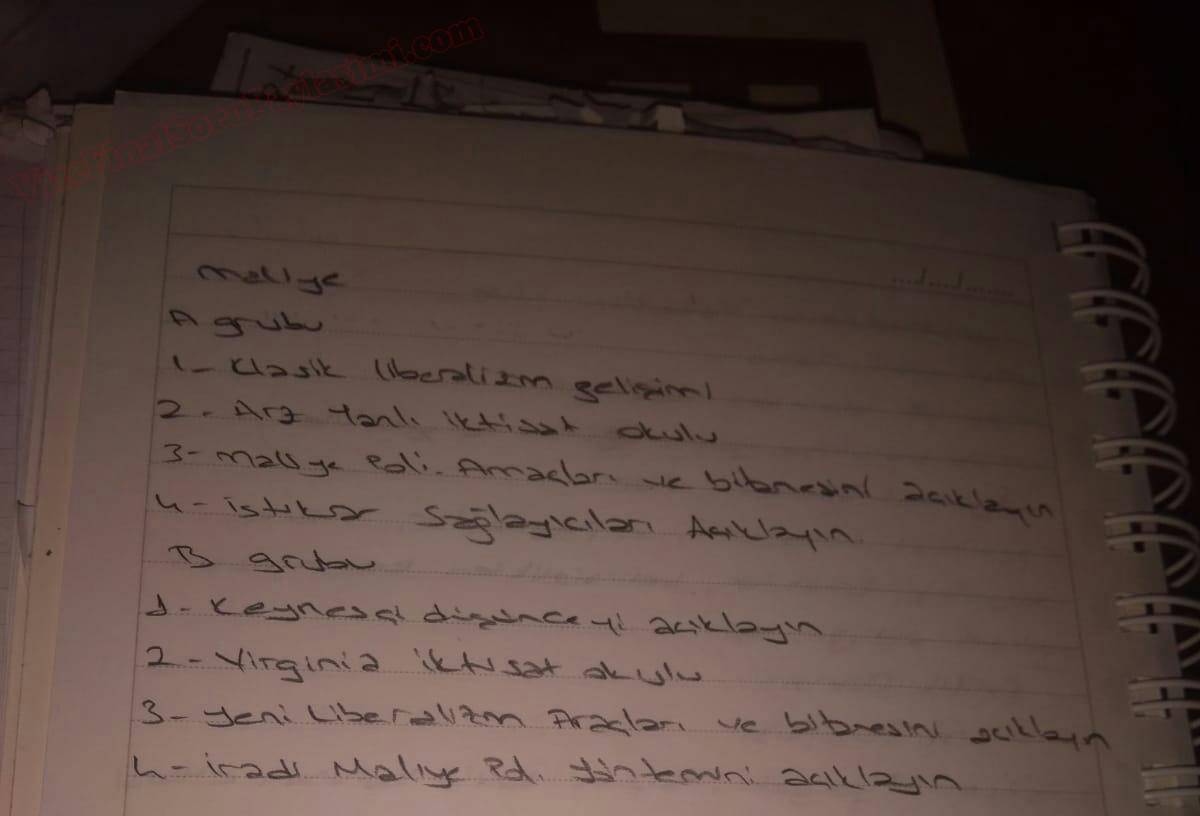 VizeFinalSorulaYardimi.com
Maliye
A grubu
1- Klasik liberalizm gelişimi
2- Arz Yanlı iktisat okulu
3- Maliye Poli. Amaçları ve bilançosunu açıklayın
4- istikrar Sağlayıcıları Açıklayın
B grubu
1- Keynesçi düşünceyi açıklayın
2- Virginia iktisat okulu
3- Yeni Liberalizm Araçları ve açıklayın
4- iradi Maliye Pol. Yöntemini açıklayın